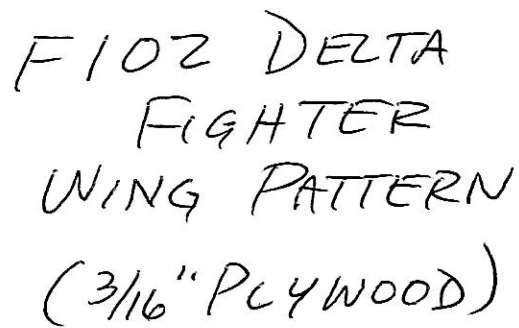 F102 DELTA
FIGHTER
WING PATTERN
(3/16" PLYWOOD)